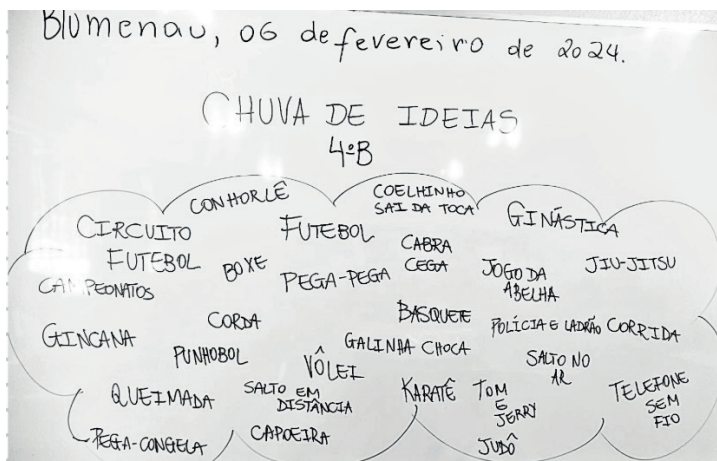 Blumenau, 06 de fevereiro de 2024.
CHUVA DE IDEIAS
4ºB
CONHORLÊ
COELHINHO
SAI DA TOCA
CIRCUITO
FUTEBOL
GINÁSTICA
FUTEBOL
BOXE
CABRA
CEGA
JIU-JITSU
CAMPEONATOS
PEGA-PEGA
JOGO DA
ABELHA
GINCANA
CORDA
BASQUETE
POLÍCIA E LADRÃO
CORRIDA
PUNHOBOL
VÔLEI
GALINHA CHOCA
SALTO NO
AR
QUEIMADA
SALTO EM
DISTÂNCIA
KARATÊ
TOM
E
JERRY
TELEFONE
SEM
FIO
PEGA-CONGELA
CAPOEIRA
JUDÔ